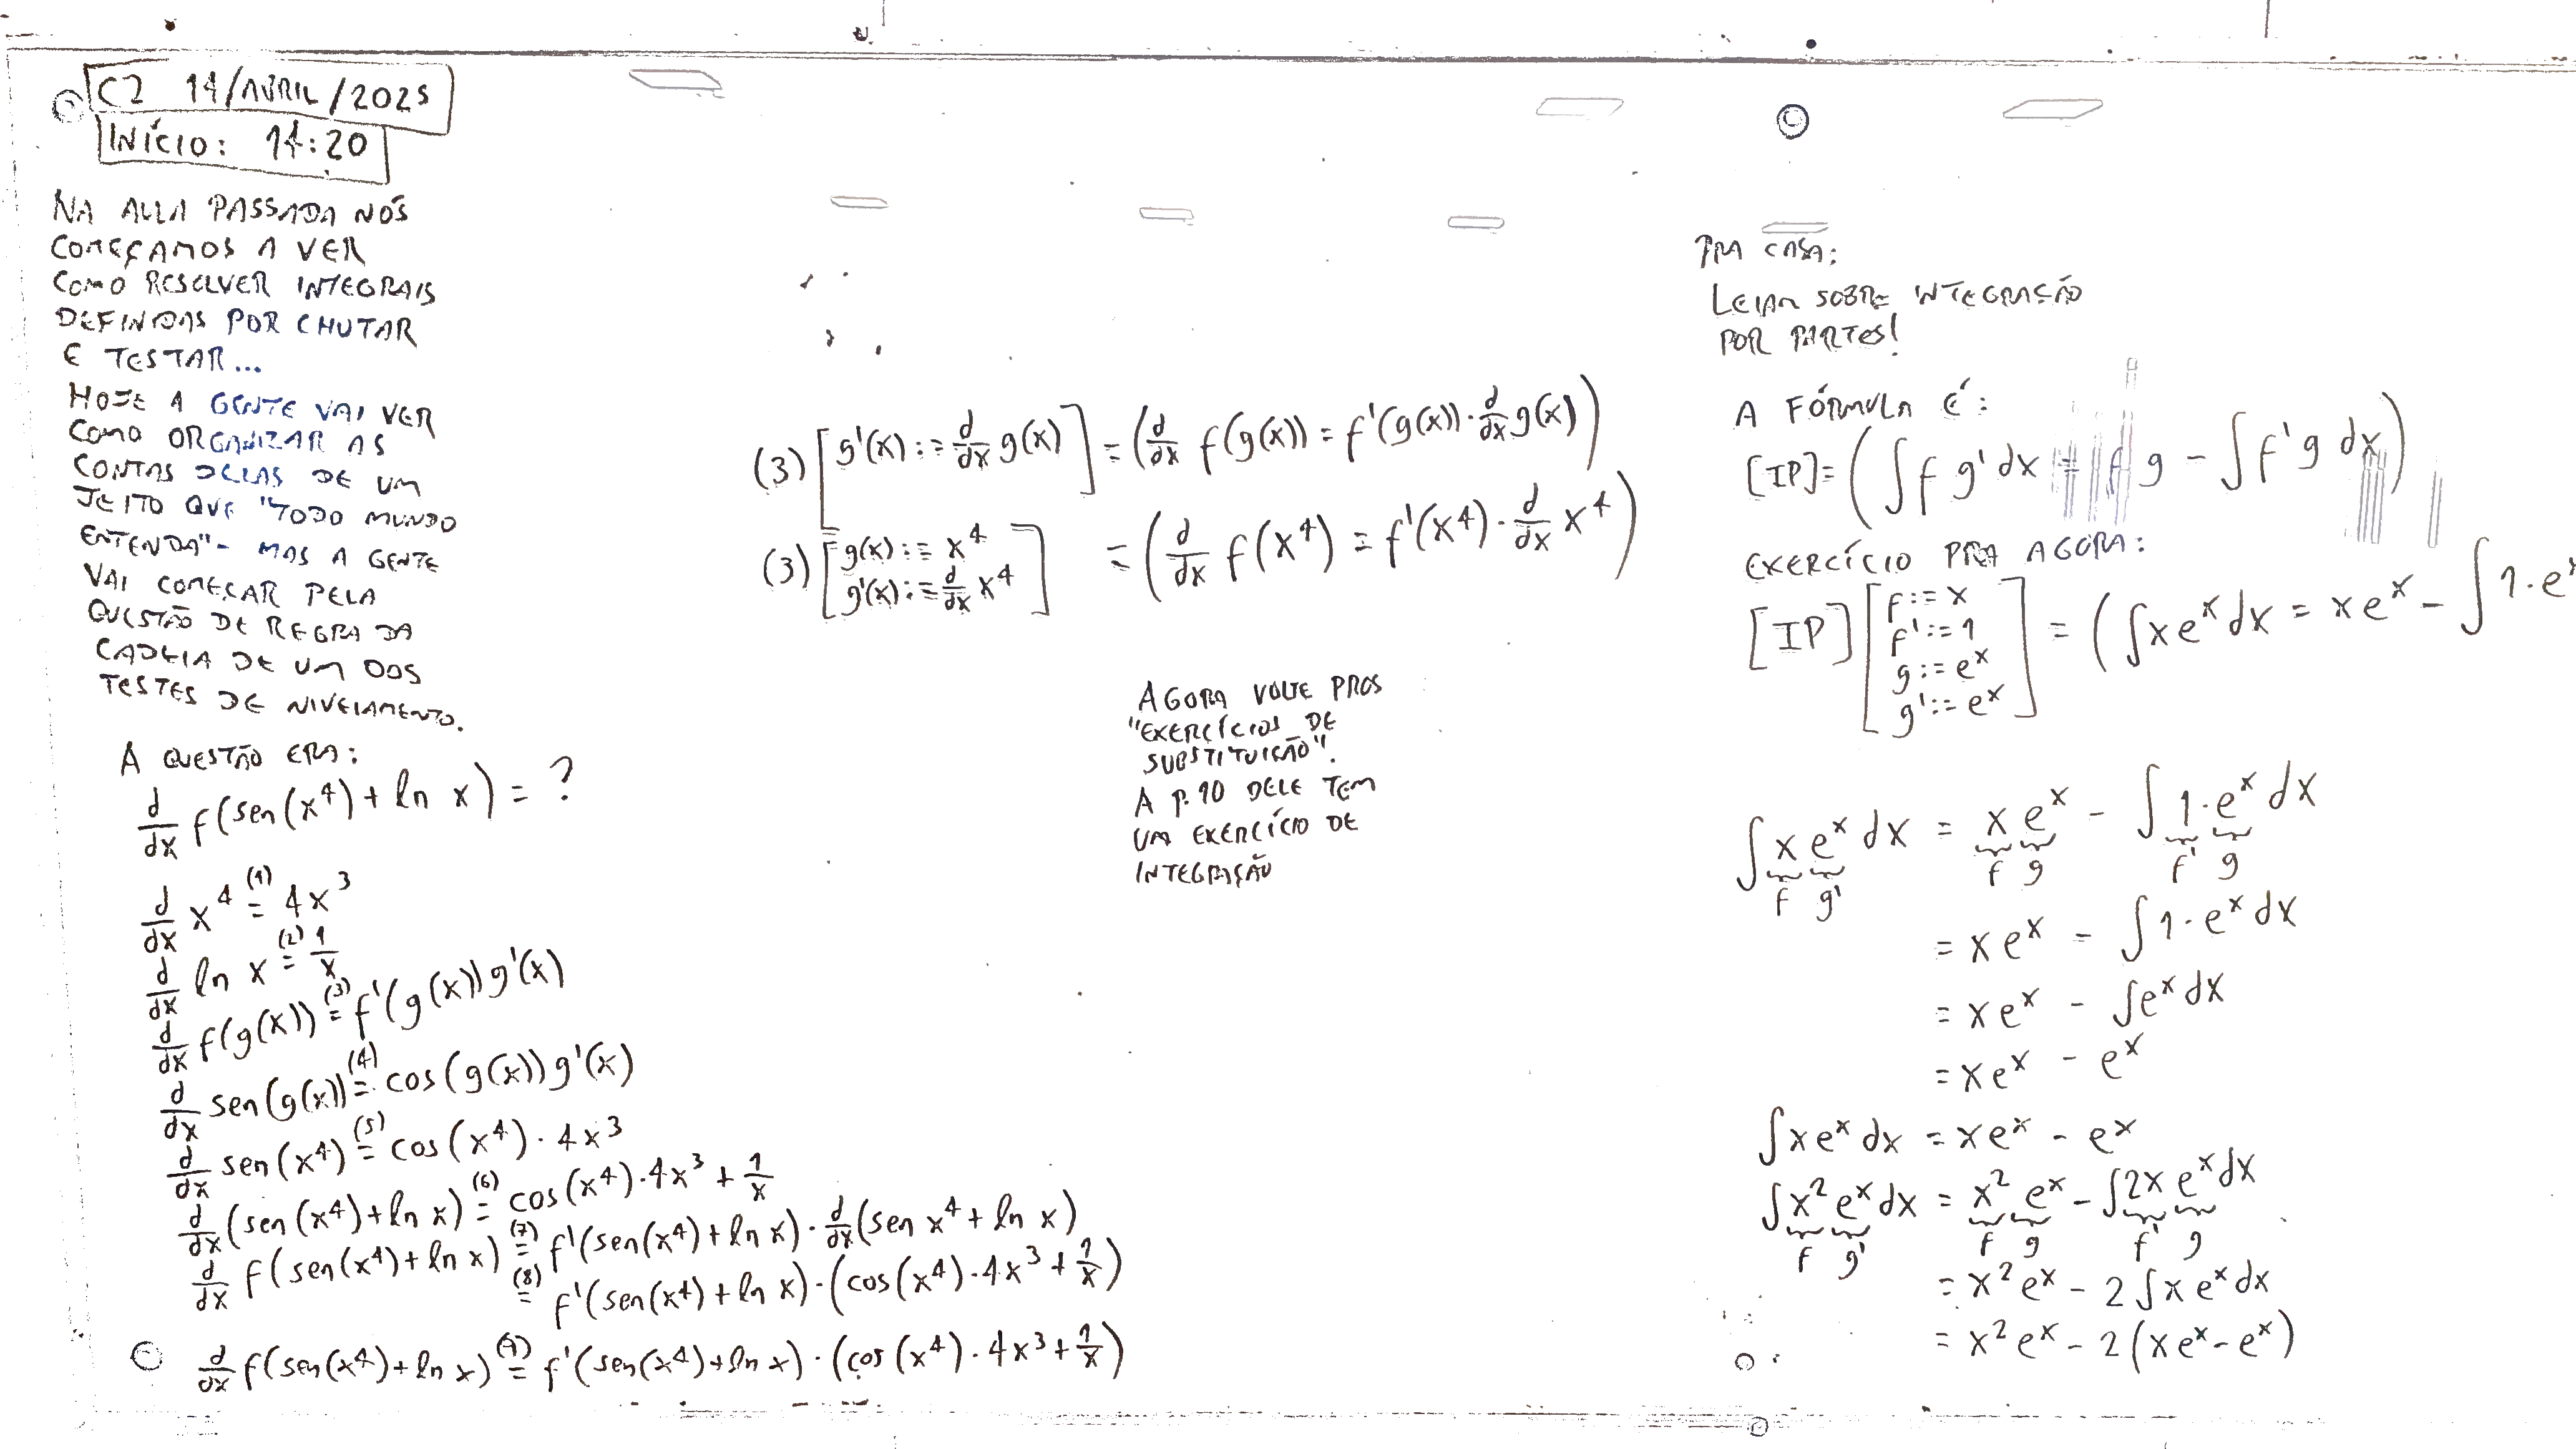 C2 14/ABRIL/2025
INÍCIO: 14:20
NA AULA PASSADA NÓS
COMEÇAMOS A VER
COMO RESOLVER INTEGRAIS
DEFINIDAS POR CHUTAR
E TESTAR...
HOJE A GENTE VAI VER
COMO ORGANIZAR AS
CONTAS DELAS DE UM
JEITO QUE "TODO MUNDO
ENTENDA" - MAS A GENTE
VAI COMEÇAR PELA
QUESTÃO DE REGRA DA
CADEIA DE UM DOS
TESTES DE NIVELAMENTO.
A QUESTÃO ERA:
d/dx f(sen(x⁴) + ln x) = ?
d/dx x⁴ (1)= 4x³
d/dx ln x (2)= 1/x
d/dx f(g(x)) (3)= f'(g(x)) g'(x)
d/dx sen(g(x)) (4)= cos(g(x)) g'(x)
d/dx sen(x⁴) (5)= cos(x⁴) · 4x³
d/dx (sen(x⁴) + ln x) (6)= cos(x⁴) · 4x³ + 1/x
d/dx f(sen(x⁴) + ln x) (7)= f'(sen(x⁴) + ln x) · d/dx (sen x⁴ + ln x)
(8)= f'(sen(x⁴) + ln x) · (cos(x⁴) · 4x³ + 1/x)
d/dx f(sen(x⁴) + ln x) (9)= f'(sen(x⁴) + ln x) · (cos(x⁴) · 4x³ + 1/x)
(3) [g'(x) := d/dx g(x)] = (d/dx f(g(x)) = f'(g(x)) · d/dx g(x))
(3) [g(x) := x⁴
g'(x) := d/dx x⁴] = (d/dx f(x⁴) = f'(x⁴) · d/dx x⁴)
AGORA VOLTE PROS
"EXERCÍCIOS DE
SUBSTITUIÇÃO".
A p.10 DELE TEM
UM EXERCÍCIO DE
INTEGRAÇÃO
PRA CASA:
LEIAM SOBRE INTEGRAÇÃO
POR PARTES!
A FÓRMULA É:
[IP] = (∫ f g' dx = f g - ∫ f' g dx)
EXERCÍCIO PRA AGORA:
[IP] [f := x
f' := 1
g := eˣ
g' := eˣ] = (∫ x eˣ dx = x eˣ - ∫ 1 · eˣ
∫ x eˣ dx = x eˣ - ∫ 1 · eˣ dx
f g' f g f' g
= x eˣ - ∫ 1 · eˣ dx
= x eˣ - ∫ eˣ dx
= x eˣ - eˣ
∫ x eˣ dx = x eˣ - eˣ
∫ x² eˣ dx = x² eˣ - ∫ 2x eˣ dx
f g' f g f' g
= x² eˣ - 2 ∫ x eˣ dx
= x² eˣ - 2(x eˣ - eˣ)